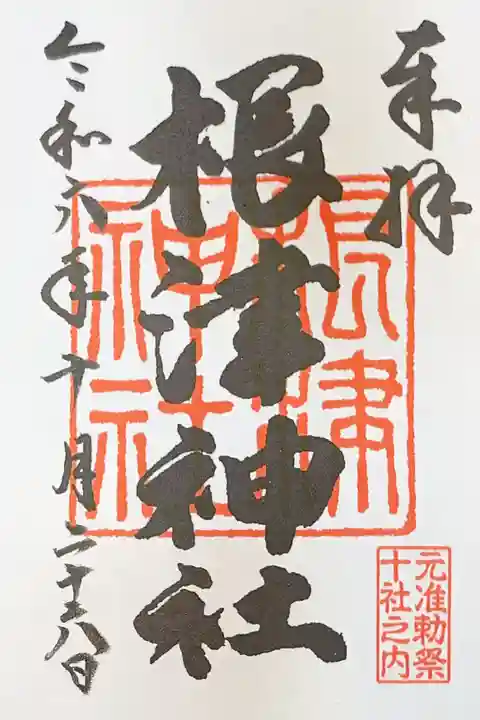 奉拝
根津神社
根津
神社
元准勅祭
十社之内
令和六年十月二十八日